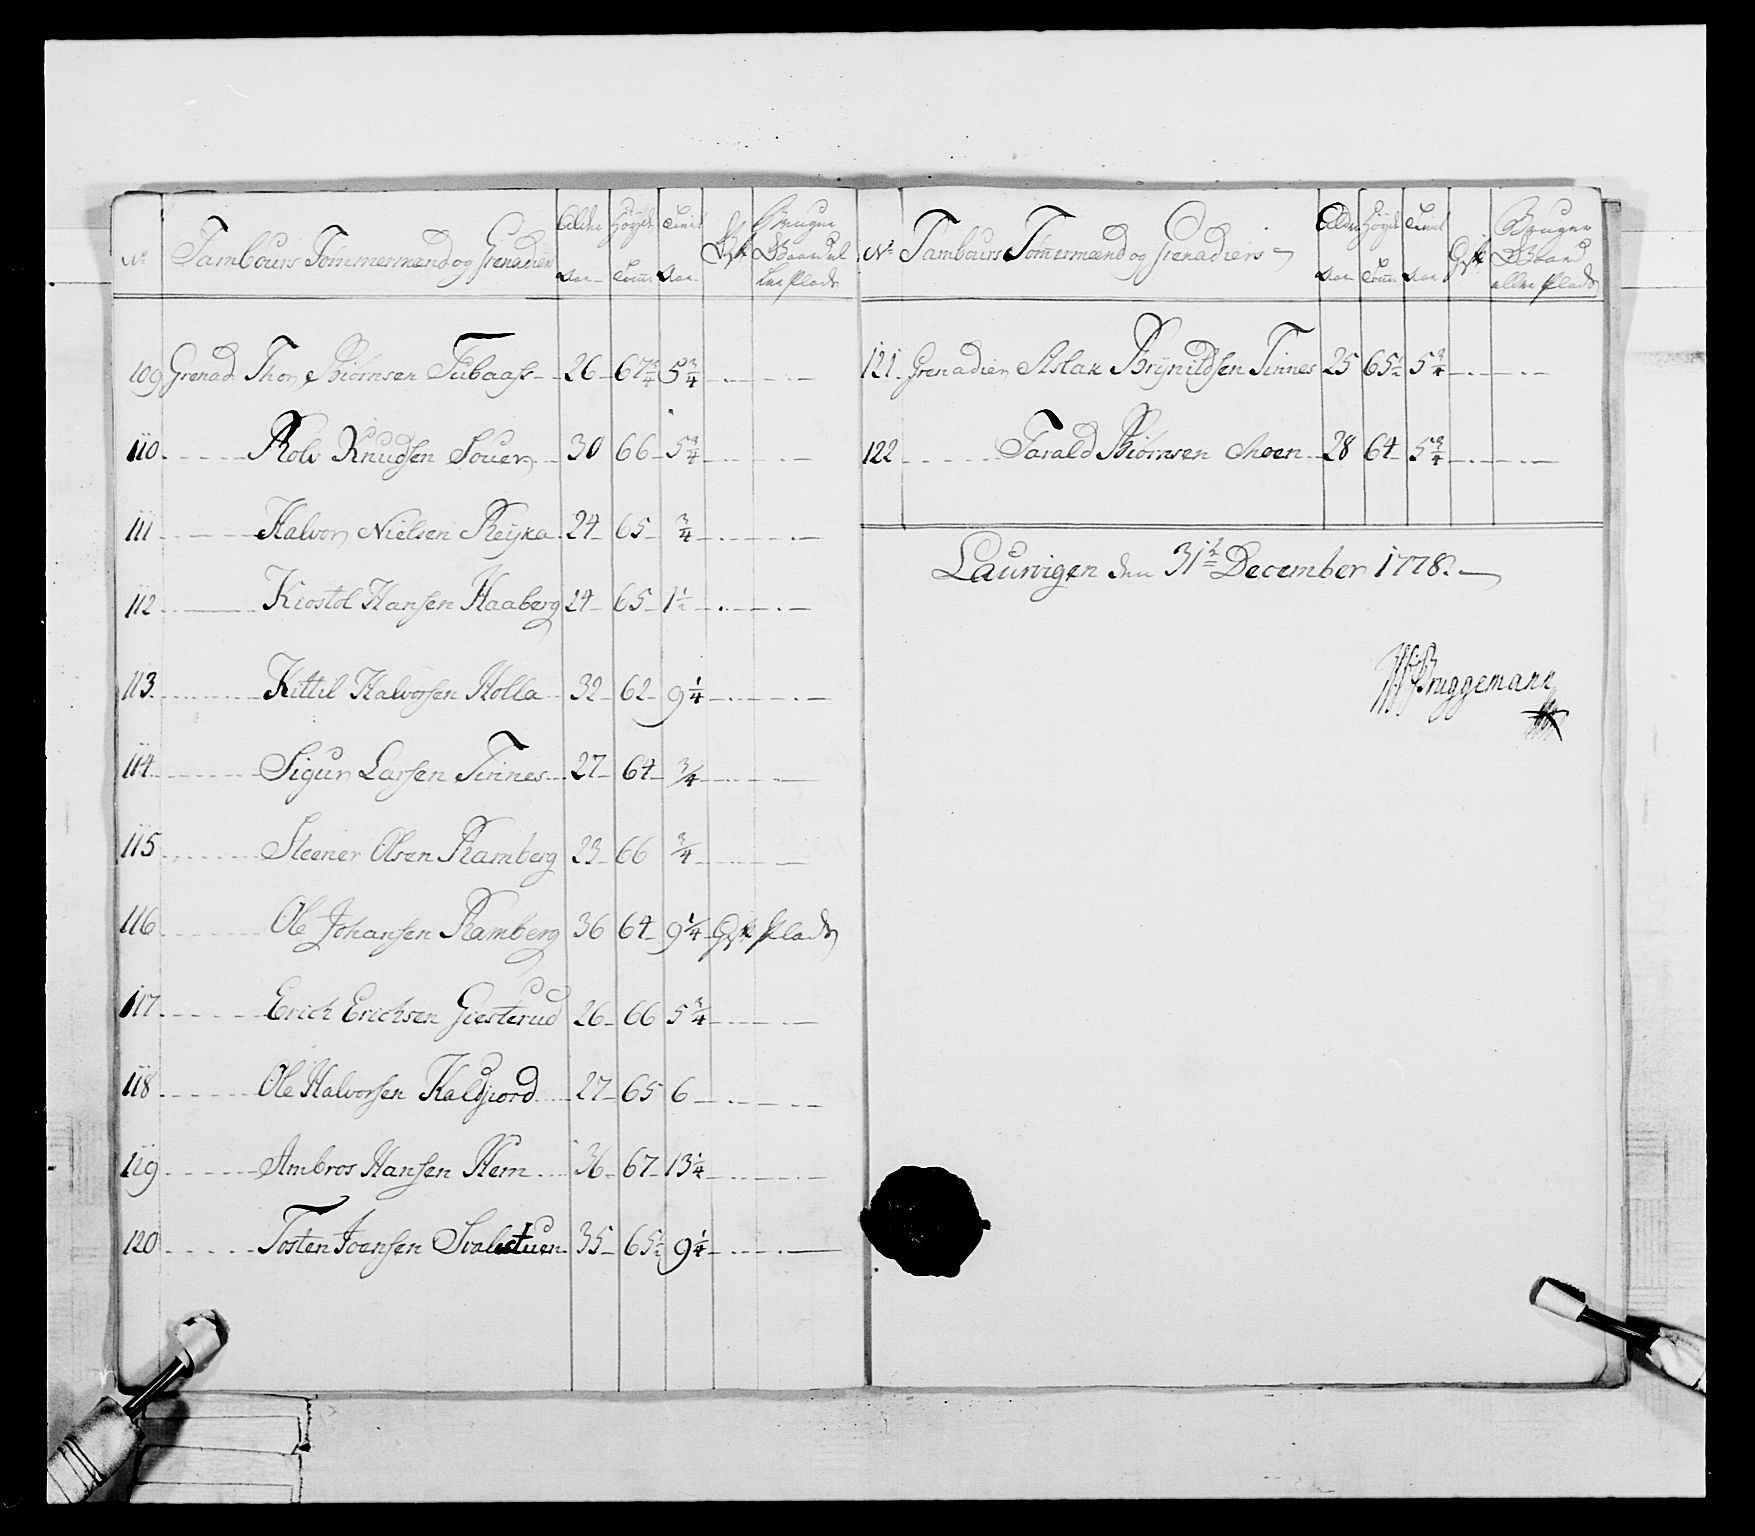 No Tambours Tömmermænd og Grenadiers Alder Aar Höyde Tomr Tient Aar Gift Bruger Gaard eller Plads
109 Grenad Thor Biörnsen Tubaass 26 67 3/4 5 3/4
110 Rolv Knudsen Souer 30 66 5 3/4
111 Halvor Nielsen Reyka 24 65 3/4
112 Kiostol Hansen Haaberg 24 65 1 1/2
113 Kittil Halvorsen Holla 32 62 9 1/4
114 Sigur Larsen Tinnes 27 64 3/4
115 Steener Olsen Ramberg 23 66 3/4
116 Ole Johansen Ramberg 36 64 9 1/4 Gift Plads
117 Erich Erichsen Giesterud 26 66 5 3/4
118 Ole Halvorsen Kaldjord 27 65 6
119 Ambros Hansen Hem 36 67 13 1/4
120 Tosten Joensen Svalestuen 35 65 1/2 9 1/4
No Tambours Tömmermænd og Grenadiers Alder Aar Höyde Tomr Tient Aar Gift Bruger Gaard eller Plads
121 Grenadier Aslak Brynildsen Tinnes 25 65 1/2 5 3/4
122 Tarald Biörnsen Moen 28 64 5 3/4
Laurvigen den 31te December 1778.
Bruggemann